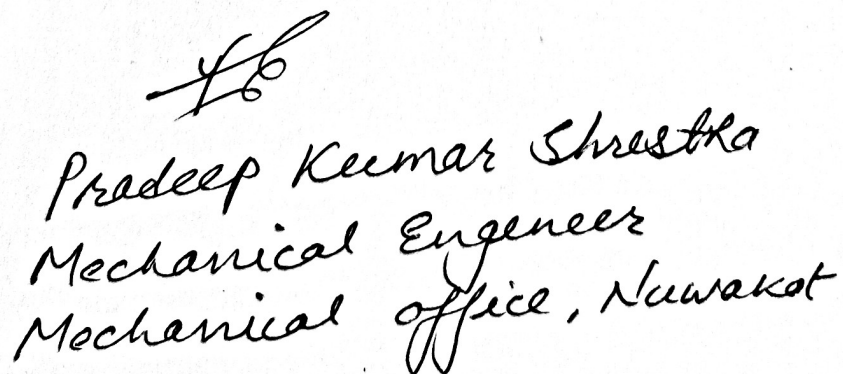 Pradeep Kumar Shrestha
Mechanical Engeneer
Mechanical office, Nuwakot